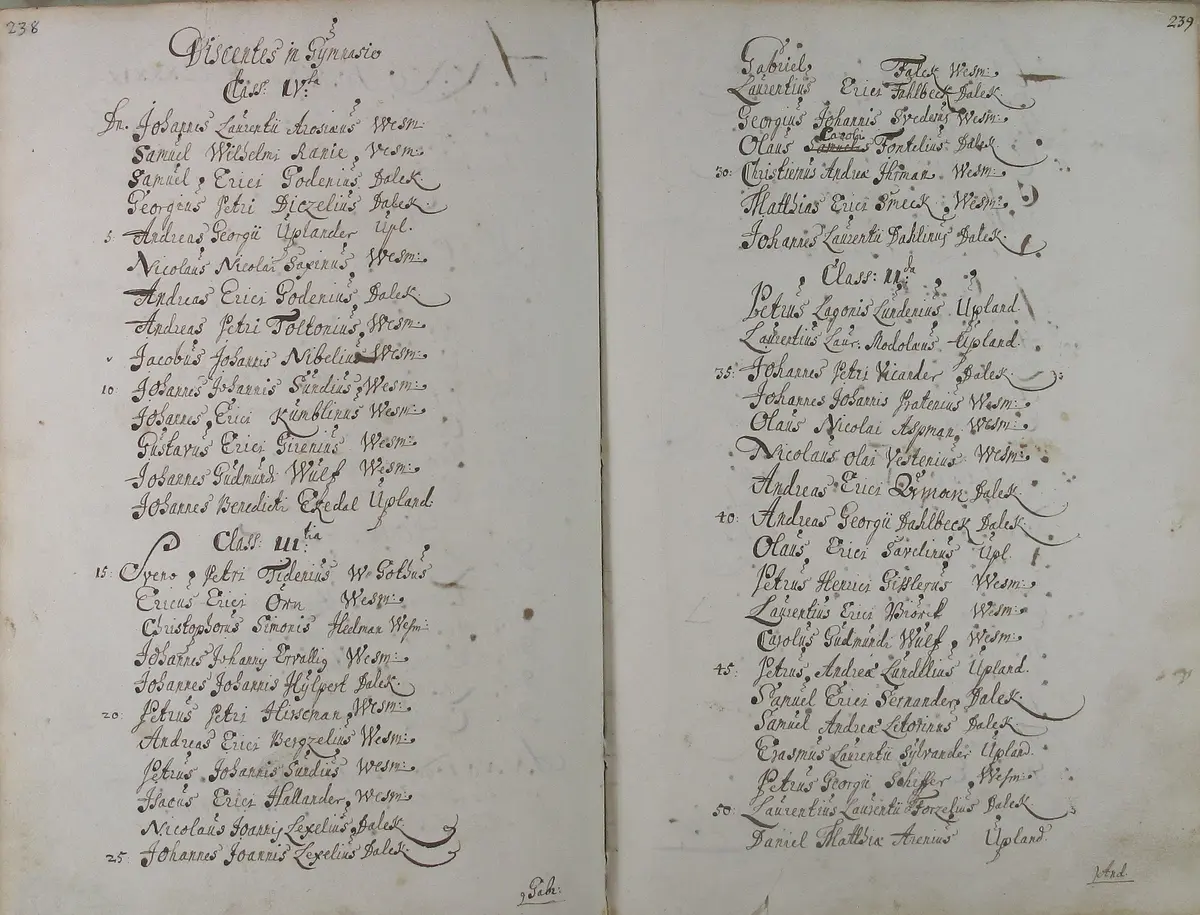 238
Discentes in Gymnasio
Class: IV:ta
Dn. Johannes Laurentii Arosiæus Wesm:
Samuel Wilhelmi Ranie, Wesm:
Samuel Erici Godenius Dalek.
Georgius Petri Diczelius Dalek.
5. Andreas Georgii Uplander Upl.
Nicolaus Nicolai Saxenus Wesm:
Andreas Erici Godenius Dalek
Andreas Petri Toltonius, Wesm:
Jacobus Johannis Nibelius Wesm:
10: Johannes Johannis Sundius, Wesm:
Johannes Erici Kumblinus Wesm:
Gustavus Erici Girenius Wesm:
Johannes Gudmundi Wulf Wesm:
Johannes Benedicti Ekedal Upland.
Class: III:tia
15: Sveno Petri Tidenius W Gothus
Ericus Erici Örn Wesm:
Christophorus Simonis Hedman Wesm:
Johannes Johannis Ervallig Wesm:
Johannes Johannis Hylpert Dalek.
20: Petrus Petri Hirseman, Wesm:
Andreas Erici Bergzelius Wesm:
Petrus Johannis Sundius Wesm:
Isacus Erici Hallander, Wesm:
Nicolaus Joannis Lexelius, Dalek.
25: Johannes Joannis Lexelius Dalek.
Gabr:
239
Gabriel Falck Wesm:
Laurentius Erici Fahlbeck Dalek.
Georgius Johannis Svederus Wesm:
Olaus Samuelis Caroli Fontelius Dalek.
30: Christiernus Andreæ Ihrman Wesm:
Matthias Erici Smeck, Wesm:
Johannes Laurentii Dahlinus Dalek.
Class: II:da
Petrus Lagonis Lundenius Upland.
Laurentius Laur: Modolæus Upland.
35: Johannes Petri Vicander Dalek.
Johannes Johannis Pratenius Wesm:
Olaus Nicolai Aspman, Wesm:
Nicolaus Olai Vestenius Wesm:
Andreas Erici Dalek.
40: Andreas Georgii Dahlbeck Dalek.
Olaus Erici Savelinus Upl.
Petrus Henrici Gisslerus Wesm:
Laurentius Erici Biörck Wesm:
Carolus Gudmundi Wulf, Wesm:
45: Petrus Andreæ Lundelius Upland.
Samuel Erici Fernander, Dalek.
Samuel Andreæ Letorinus Dalek.
Erasmus Laurentii Sylvander Upland.
Petrus Georgii Schiffer Wesm:
50: Laurentius Laurentii Forzelius Dalek.
Daniel Matthiæ Arenius Upland.
And.